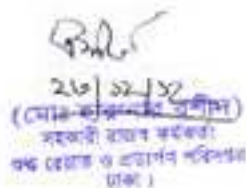 ২৬|১২|১২
(মোঃ
সহকারী রাজস্ব কর্মকর্তা
শুল্ক রেয়াত ও প্রত্যর্পণ পরিদপ্তর
ঢাকা।